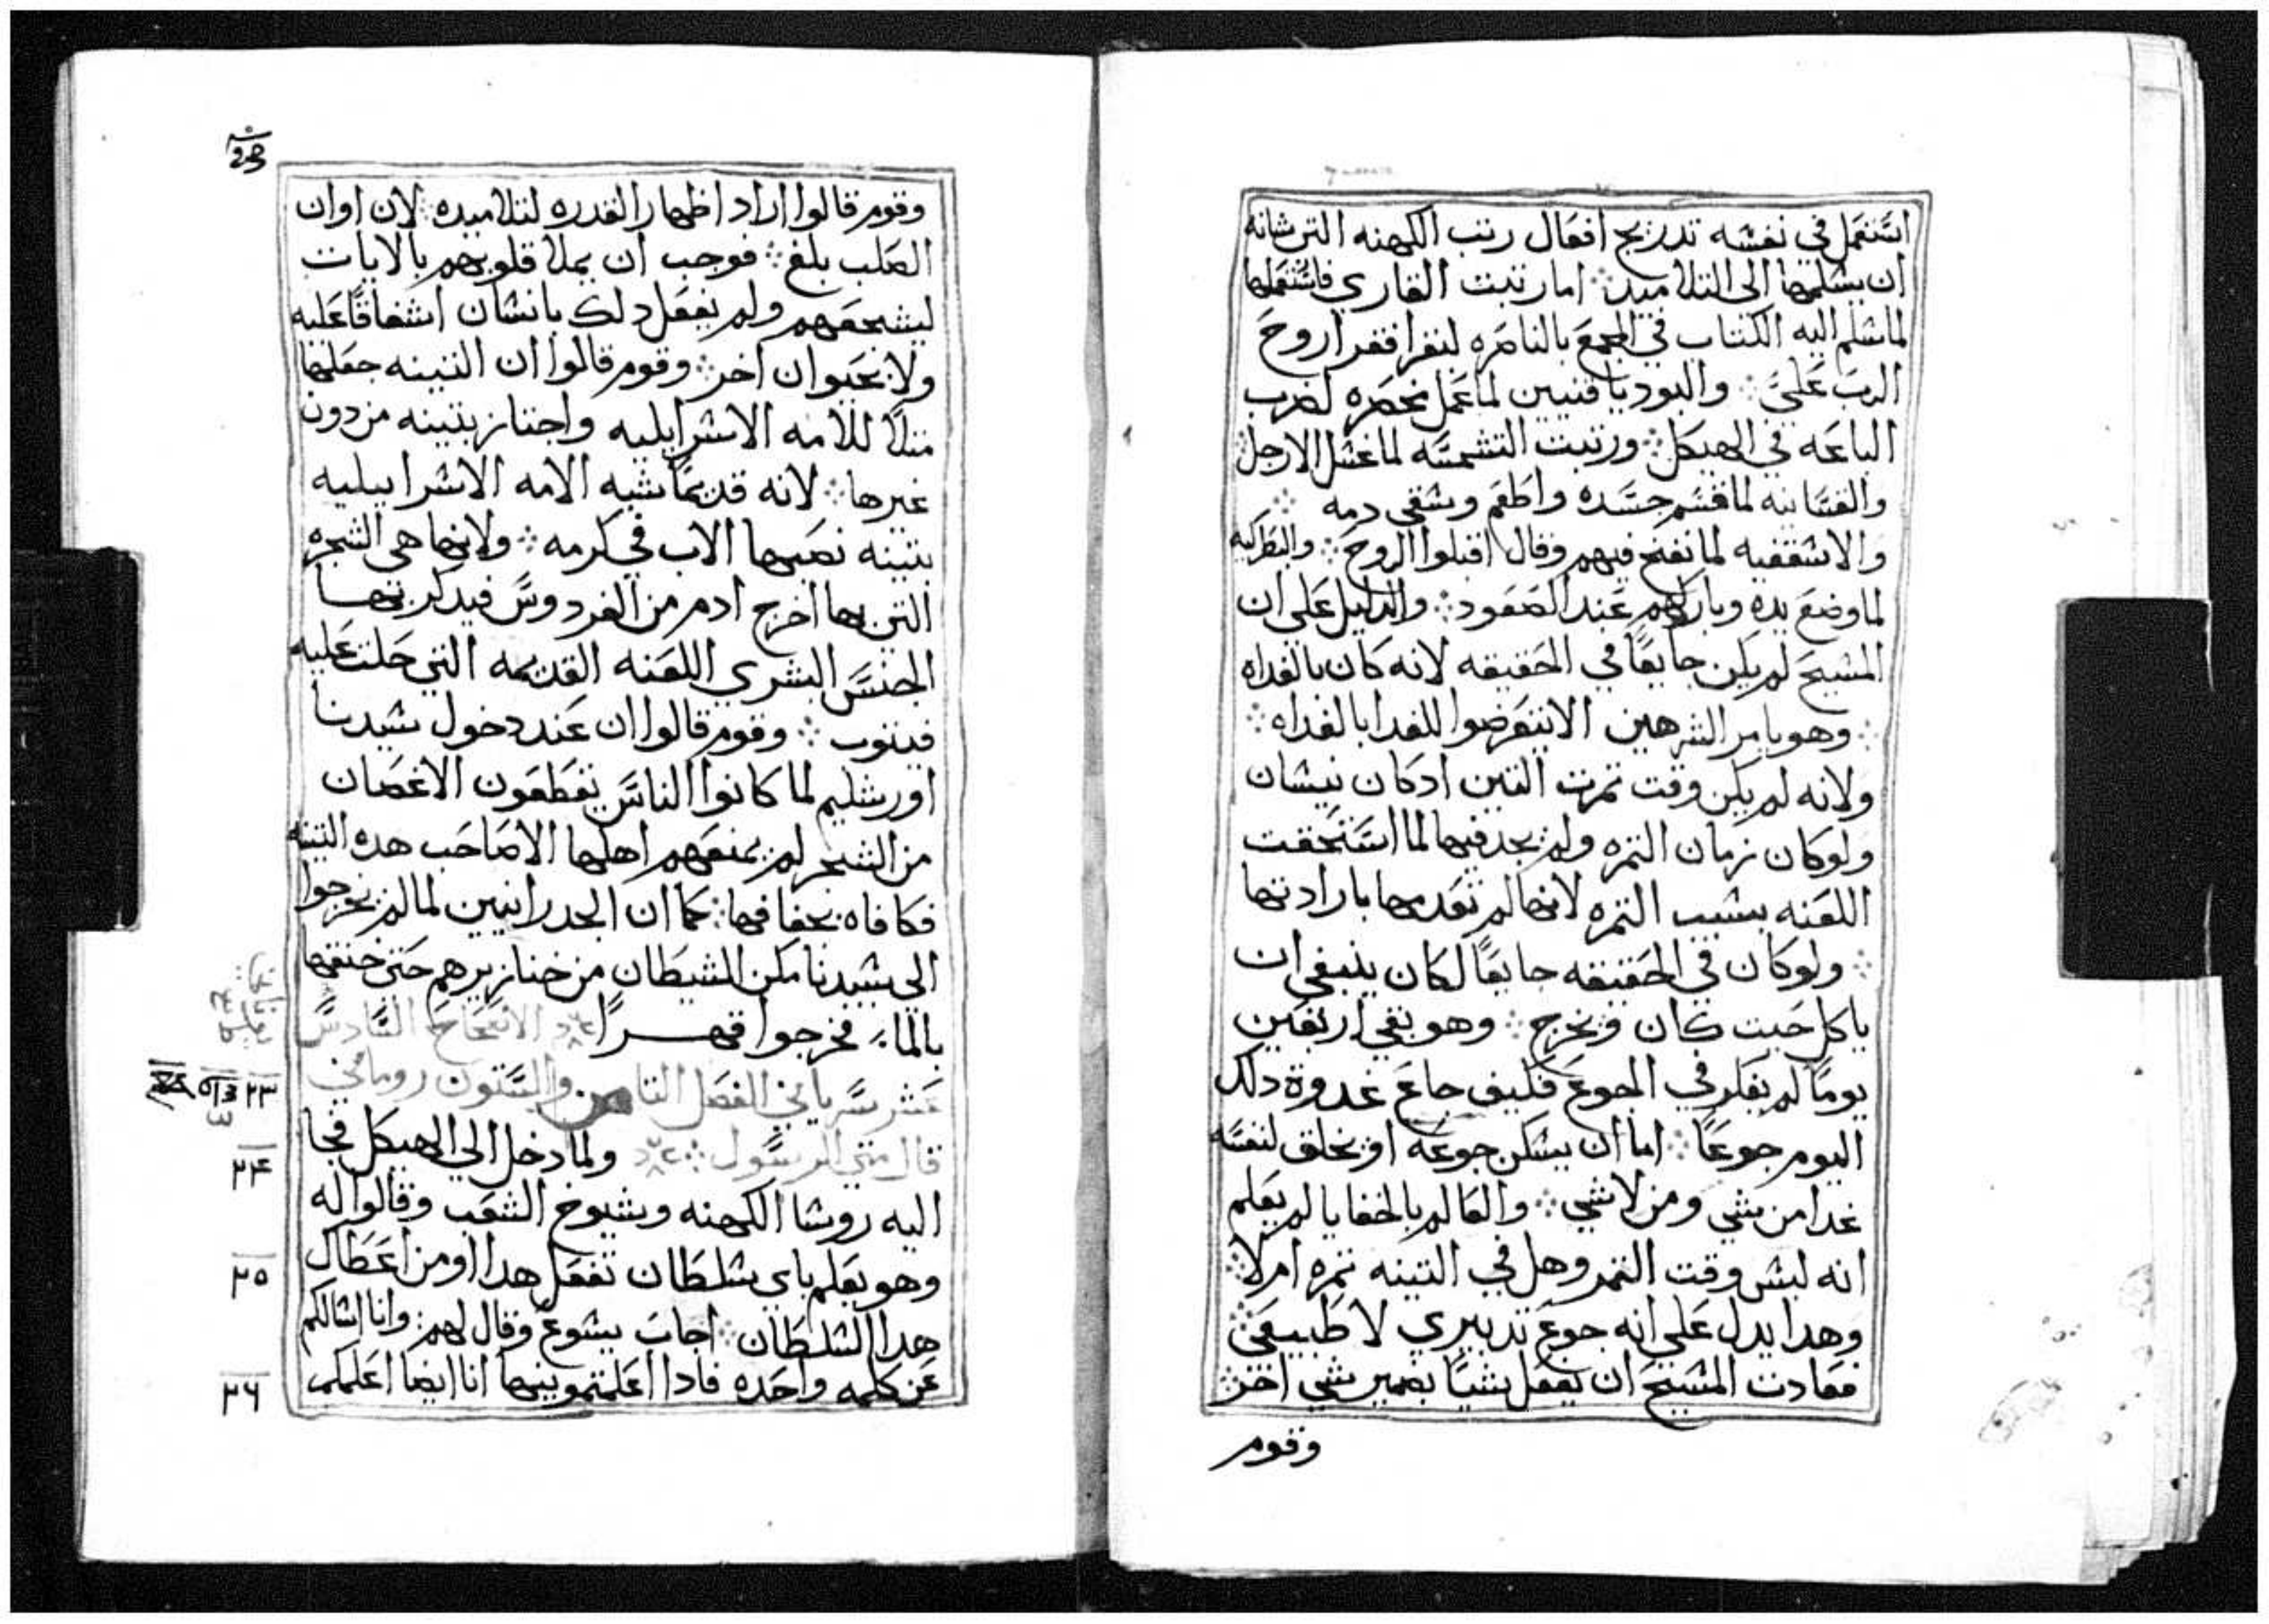 استعمل في نفسه تدريج افعال رتب الكهنه التي شانه
ان يسلمها الى التلاميد اما رتبت القاري فاستعملها
لما سلم اليه الكتاب في المجمع بالناصره ليقرا فقرا روح
الرب علي والابودياقنيين لما عمل مخصره لضرب
الباعه في الهيكل ورتبت الشمسه لما غسل الارجل
والقسانيه لما قسم جسده واطعم وسقي دمه
والاسقفيه لما نفخ فيهم وقال اقبلوا الروح والبطركيه
لما وضع يده وباركهم عند الصعود والدليل على ان
المسيح لم يكن جايعًا في الحقيقه لانه كان بالغداه
وهو يامر الشرهين الا يتعرضوا للغدا بالغداه
ولانه لم يكن وقت تمرت التين ادكان نيسان
ولوكان زمان التمره ولم يجد فيها لما استحقت
اللعنه بسبب التمره لانها لم تعدمها بارادتها
ولوكان في الحقيقه جايعًا لكان ينبغي ان
ياكل حيت كان ويخرج وهو بقي اربعين
يومًا لم يفكر في الجوع فكيف جاع غدوة دلك
اليوم جوعًا اما ان يسكن جوعه او يخلق لنفسه
غدا من شي ومن لاشي والعالم بالخفايا لم يعلم
انه ليس وقت التمر وهل في التينه تمره ام لا
وهدا يدل على انه جوع تدبيري لا طبيعي
فعادت المسيح ان يفعل شيًا بضمير شي اخر
وقوم
وقوم قالوا اراد اظهار القدره لتلاميده لان اوان
الصلب بلغ فوجب ان يملا قلوبهم بالايات
ليشجعهم ولم يفعل دلك بانسان اشفاقًا عليه
ولا بحيوان اخر وقوم قالوا ان التينه جعلها
متلًا للامه الاسرايليه واجتاز بتينه من دون
غيرها لانه قديمًا شبه الامه الاسراييليه
بتينه نصبها الاب في كرمه ولانها هي الشجره
التي بها اخرج ادم من الفردوس فيدكر بتها
الجنس البشري اللعنه القديمه التي حلت عليه
فيتوب وقوم قالوا ان عند دخول سيدنا
اورشليم لما كانوا الناس يقطعون الاغصان
من الشجر لم يمنعهم اهلها الا صاحب هده التينه
فكافاه بجفافها كما ان الجدرانيين لما لم يخرجوا
الى سيدنا مكن الشيطان من خنازيرهم حتى خنقها
بالماء فخرجوا قهرًا الاصحاح السادس
عشر سرياني الفصل التامن والستون روماني
قال متي الرسول ولما دخل الي الهيكل فجا
اليه روسا الكهنه وشيوخ الشعب وقالوا له
وهو يعلم باي سلطان تفعل هدا او من اعطاك
هدا السلطان اجاب يسوع وقال لهم وانا اسالكم
عن كلمه واحده فادا اعلمتمو ينيها انا ايضا اعلمكم
٢٣
٢٤
٢٥
٢٦